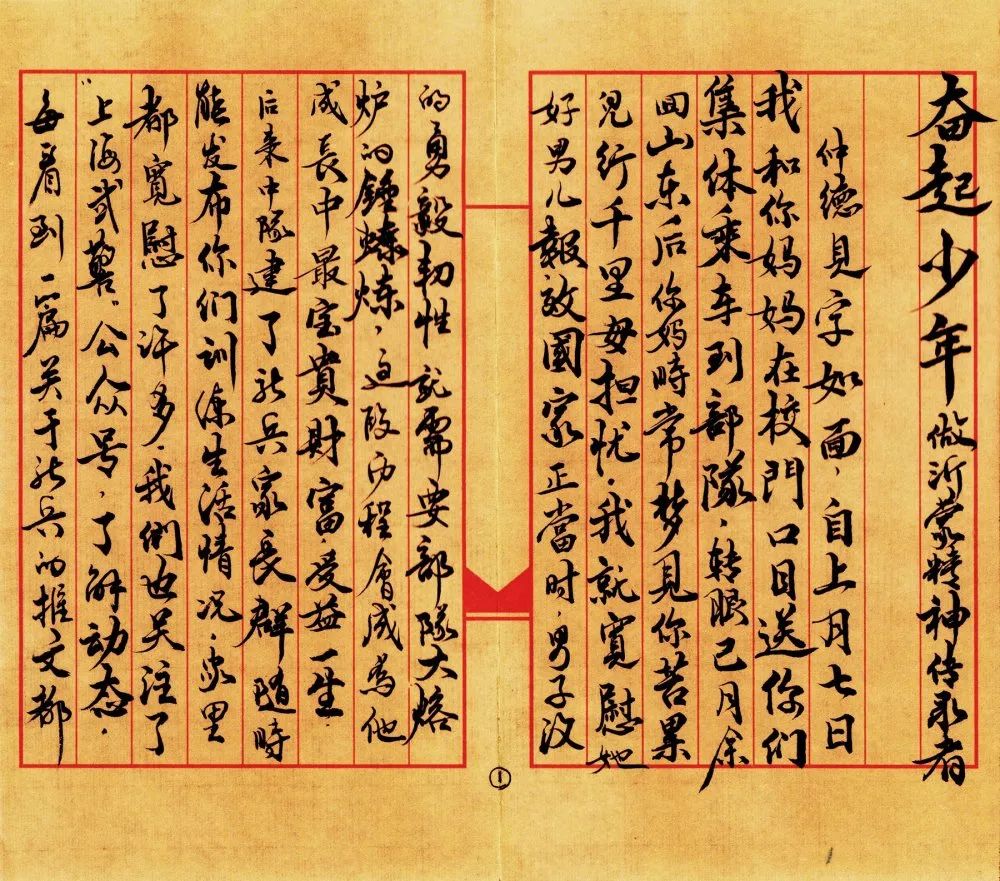 奋起少年做沂蒙精神传承者
仲德見字如面，自上月七日
我和你妈妈在校門口目送你们
集体乘车到部隊，转眼已月余
回山东后你妈時常梦見你苦累
兒行千里母担忧，我就寬慰她
好男儿報效國家正當时，男子汉
的勇毅韧性就需要部隊大熔
炉的錘煉炼，这段历程會成為他
成長中最宝貴財富，受益一生。
后来中隊建了新兵家長群随時
能发布你们训练生活情况，家里
都寬慰了许多，我們也关注了
“上海武警”公众号，了解动态，
每看到一篇关于新兵的推文都
①